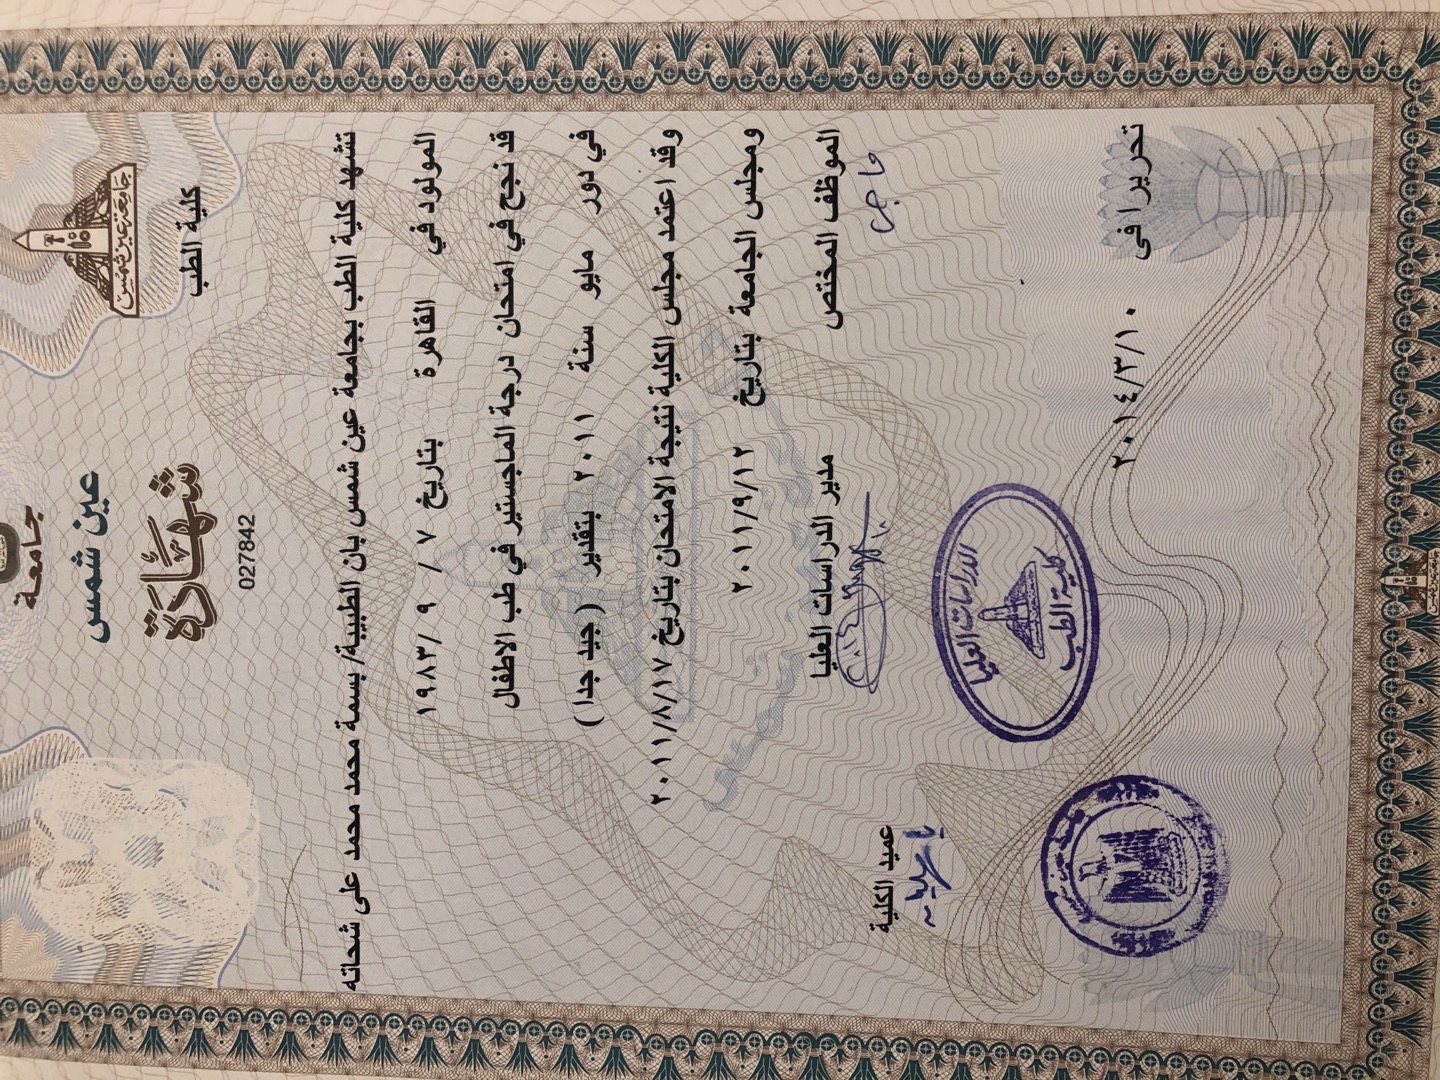 جامعة
عين شمس
جامعة عين شمس
كلية الطب
شهادة
027842
تشهد كلية الطب بجامعة عين شمس بان الطبيبة/ بسمة محمد محمد على شحاته
المولود في القاهرة بتاريخ ٧ / ٩ /١٩٨٣
قد نجح في امتحان درجة الماجستير في طب الاطفال
في دور مايو سنة ٢٠١١ بتقدير ( جيد جدا )
وقد اعتمد مجلس الكلية نتيجة الامتحان بتاريخ ٢٠١١/٨/١٧
ومجلس الجامعة بتاريخ ٢٠١١/٩/١٢
الموظف المختص
مدير الدراسات العليا
عميد الكلية
الدراسات العليا
كلية الطب
تحريرا فى ٢٠١٤/٣/١٠